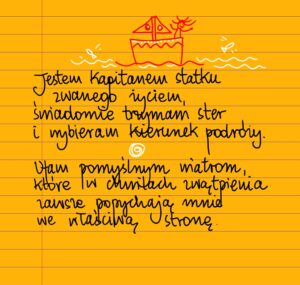 Jestem kapitanem statku
zwanego życiem,
świadomie trzymam ster
i wybieram kierunek podróży.
Ufam pomyślnym wiatrom,
które w chwilach zwątpienia
zawsze popychają mnie
we właściwą stronę.